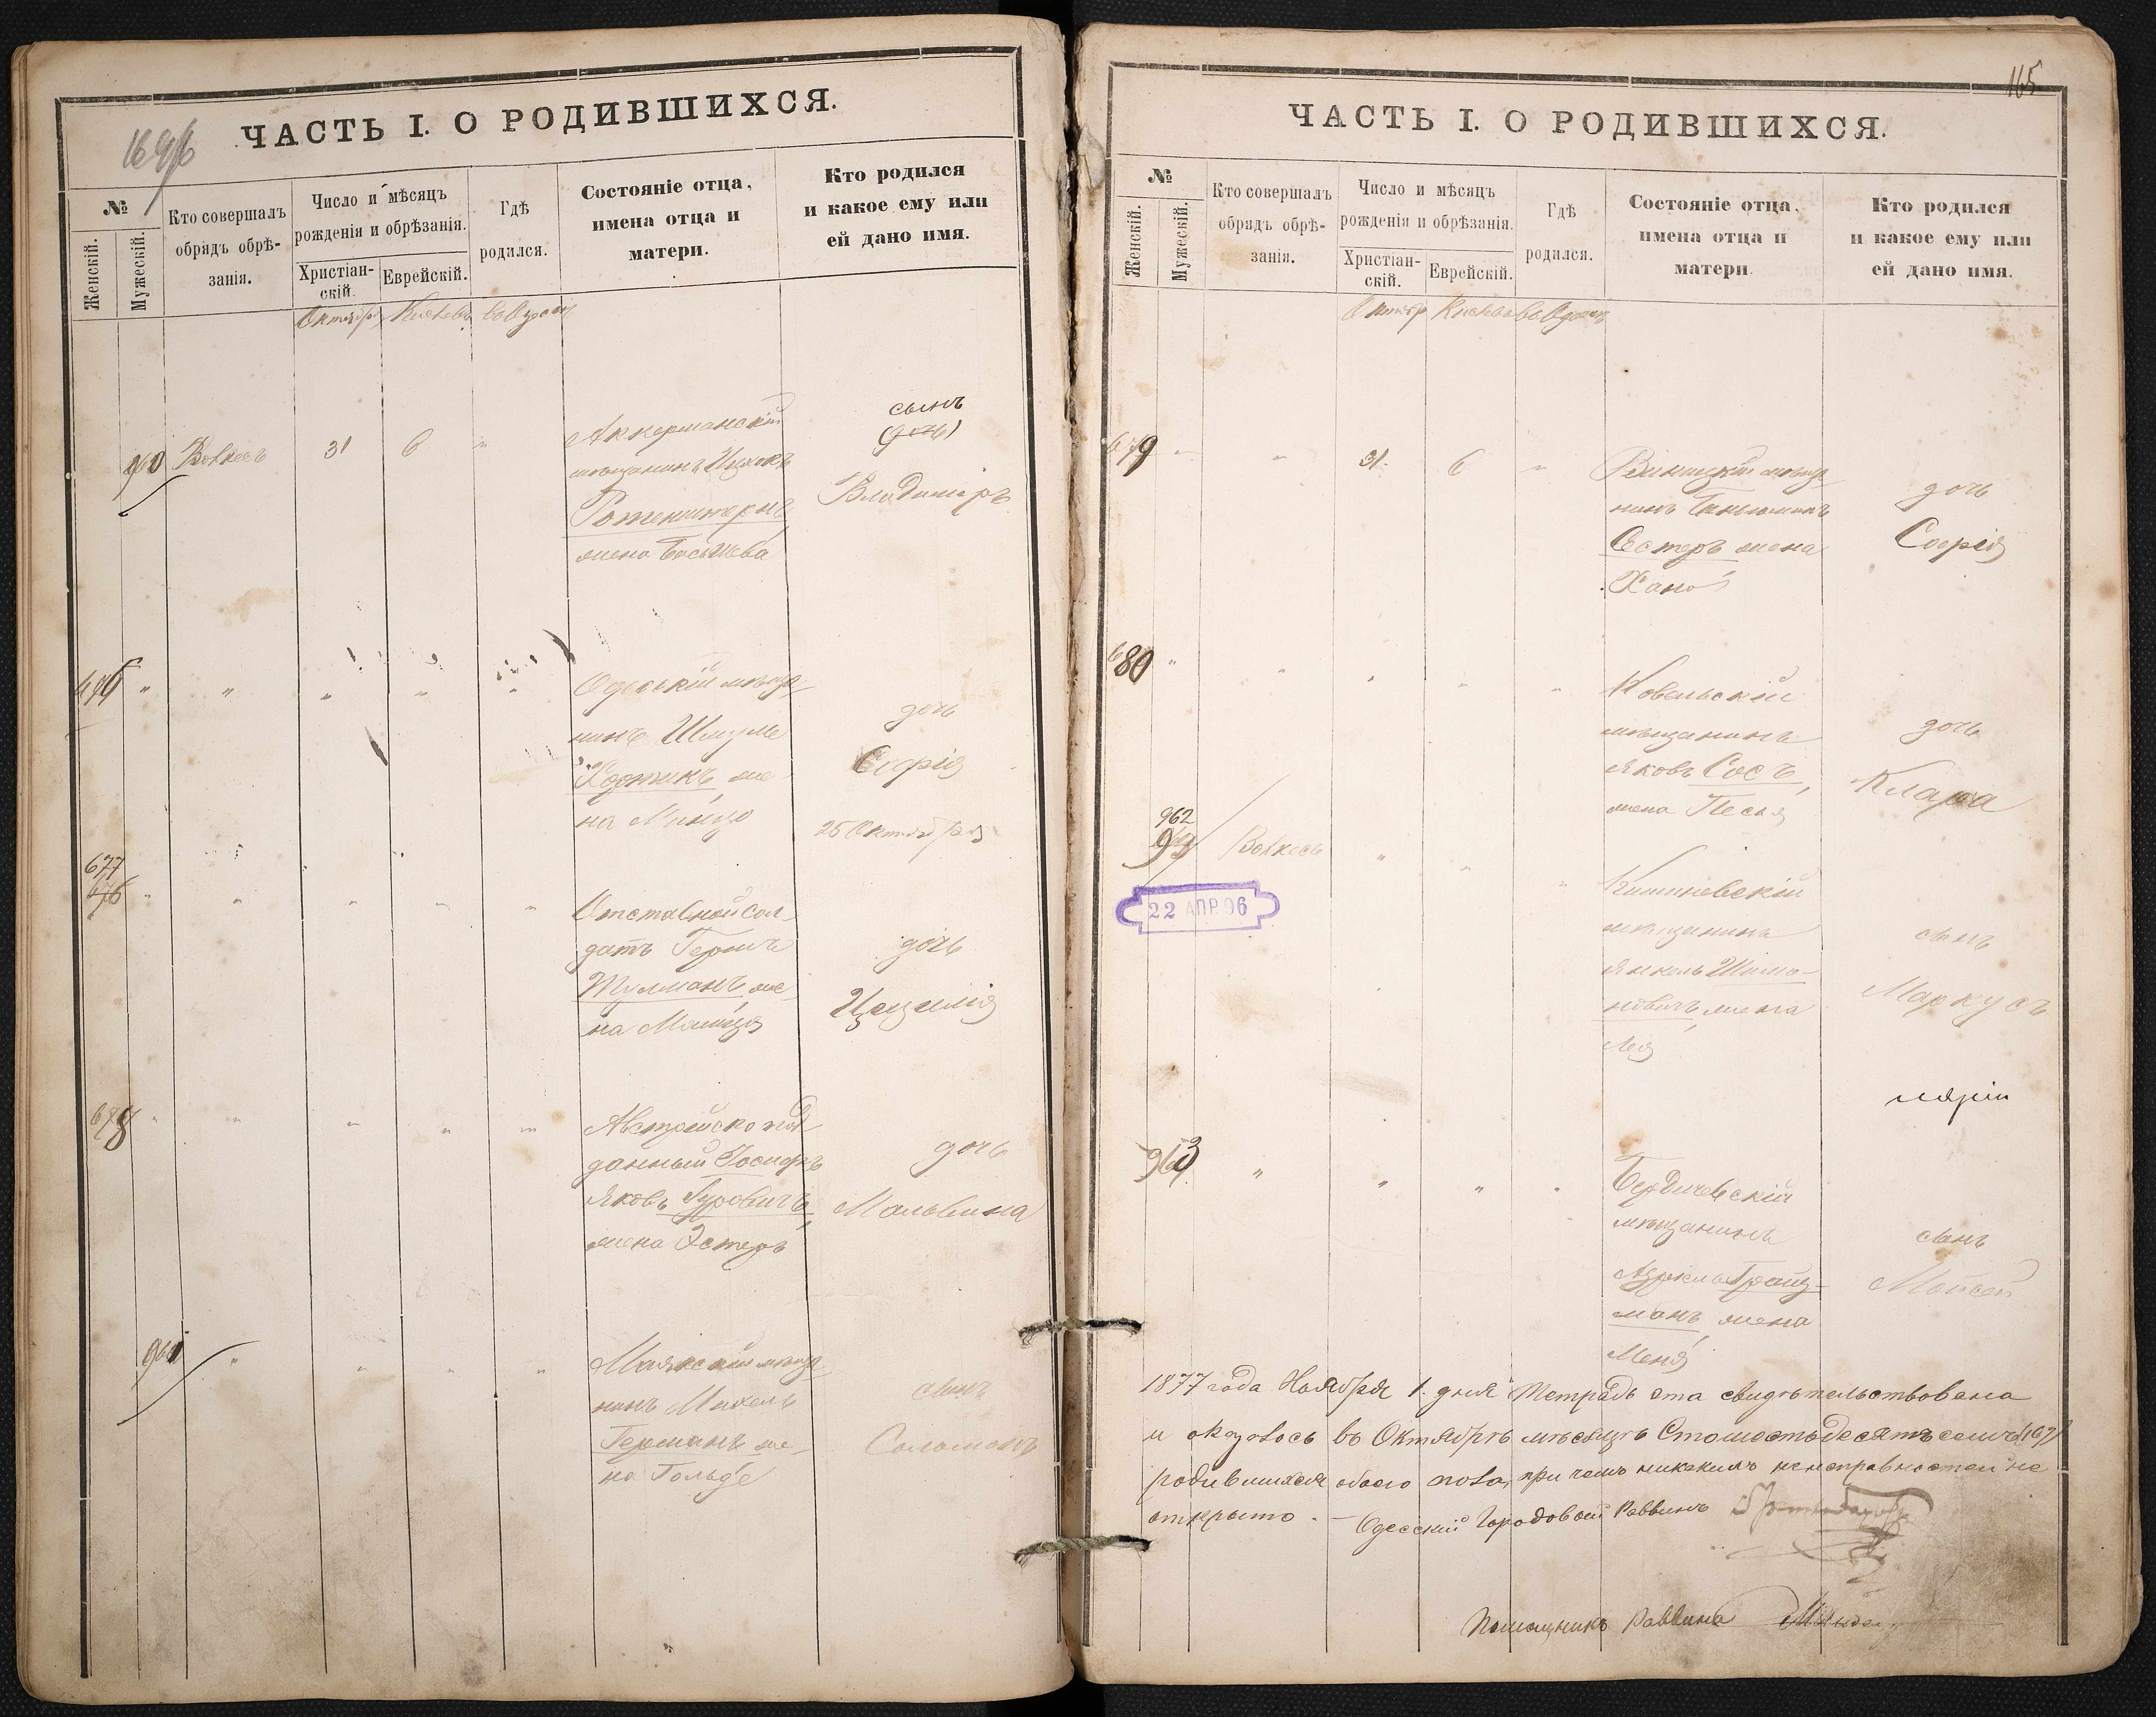 ЧАСТЬ I. О РОДИВШИХСЯ.
№
Женскій.
Мужескій.
Кто совершалъ
обрядъ обрѣ-
занія.
Число и мѣсяцъ
рожденія и обрѣзанія.
Христіан-
скій.
Еврейскій.
Гдѣ
родился.
Состояніе отца,
имена отца и
матери.
Кто родился
и какое ему или
ей дано имя.
960
31
6
Аккерманскій
мѣщанинъ Ицхокъ
Ротенштернъ
жена Басъ Шева
сынъ
(дочь)
Владиміръ
Одесскій мѣща-
нинъ Шлузме
же-
на
дочь
Софія
25 Октября
677
676
Отставной сол-
датъ Гершъ
же-
на
дочь
Цецилія
678
Австрійско под
данный
Яковъ Гуровичъ,
жена Эстеръ
дочь
Мальвина
961
Маякскій мѣща
нинъ Михель
Германъ же-
на Гольде
сынъ
Соломонъ
ЧАСТЬ I. О РОДИВШИХСЯ.
165
№
Женскій.
Мужескій.
Кто совершалъ
обрядъ обрѣ-
занія.
Число и мѣсяцъ
рожденія и обрѣзанія.
Христіан-
скій.
Еврейскій.
Гдѣ
родился.
Состояніе отца,
имена отца и
матери.
Кто родился
и какое ему или
ей дано имя.
679
31
6
Винницкій мѣща
нинъ Беньюминъ
Естеръ жена
Хана
дочь
Софія
680
Ковельскій
мѣщанинъ
Яковъ Сосъ,
жена Песя
дочь
Клара
962
22 АПР. 96
Кишиневскій
мѣщанинъ
Янкель Шимо-
новичъ, жена
Лея
сынъ
Маркусъ
963
Бердичевскій
мѣщанинъ
Азриель Гройс-
манъ жена
Меня
сынъ
Мойсей
1877 года Ноября 1. дня Тетрадь эта свидѣтельствована
и оказалось въ Октябрѣ мѣсяцѣ Сто шестьдесятъ семь (167)
родившихся обоего пола, при чемъ никакихъ неисправностей не
открыто. — Одесскій Городовой Раввинъ
Помощникъ Раввина